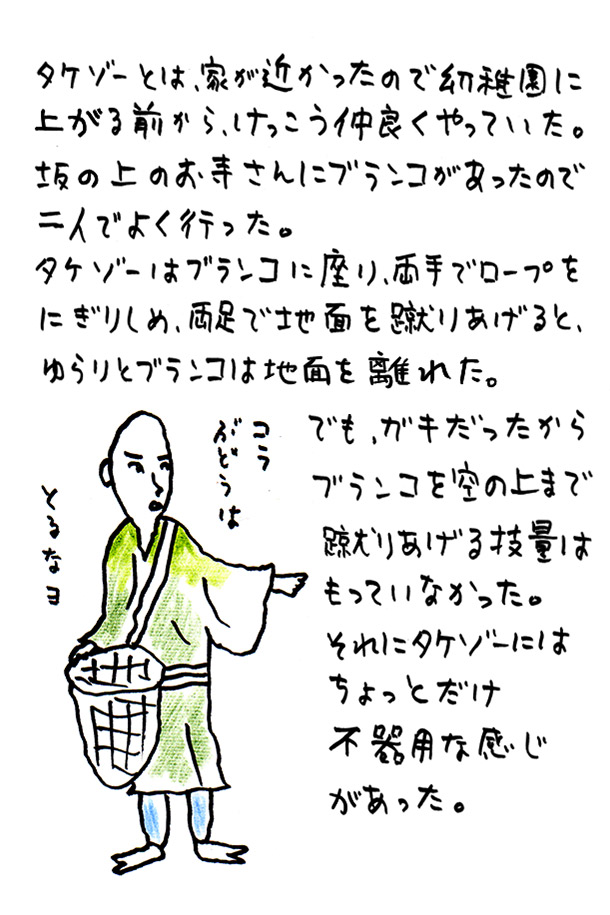 タケゾーとは、家が近かったので幼稚園に
上がる前から、けっこう仲良くやっていた。
坂の上のお寺さんにブランコがあったので
二人でよく行った。
タケゾーはブランコに座り、両手でロープを
にぎりしめ、両足で地面を蹴りあげると、
ゆらりとブランコは地面を離れた。
でも、ガキだったから
ブランコを空の上まで
蹴りあげる技量は
もっていなかった。
それにタケゾーには
ちょっとだけ
不器用な感じ
があった。
コラ
ぶどうは
とるなヨ